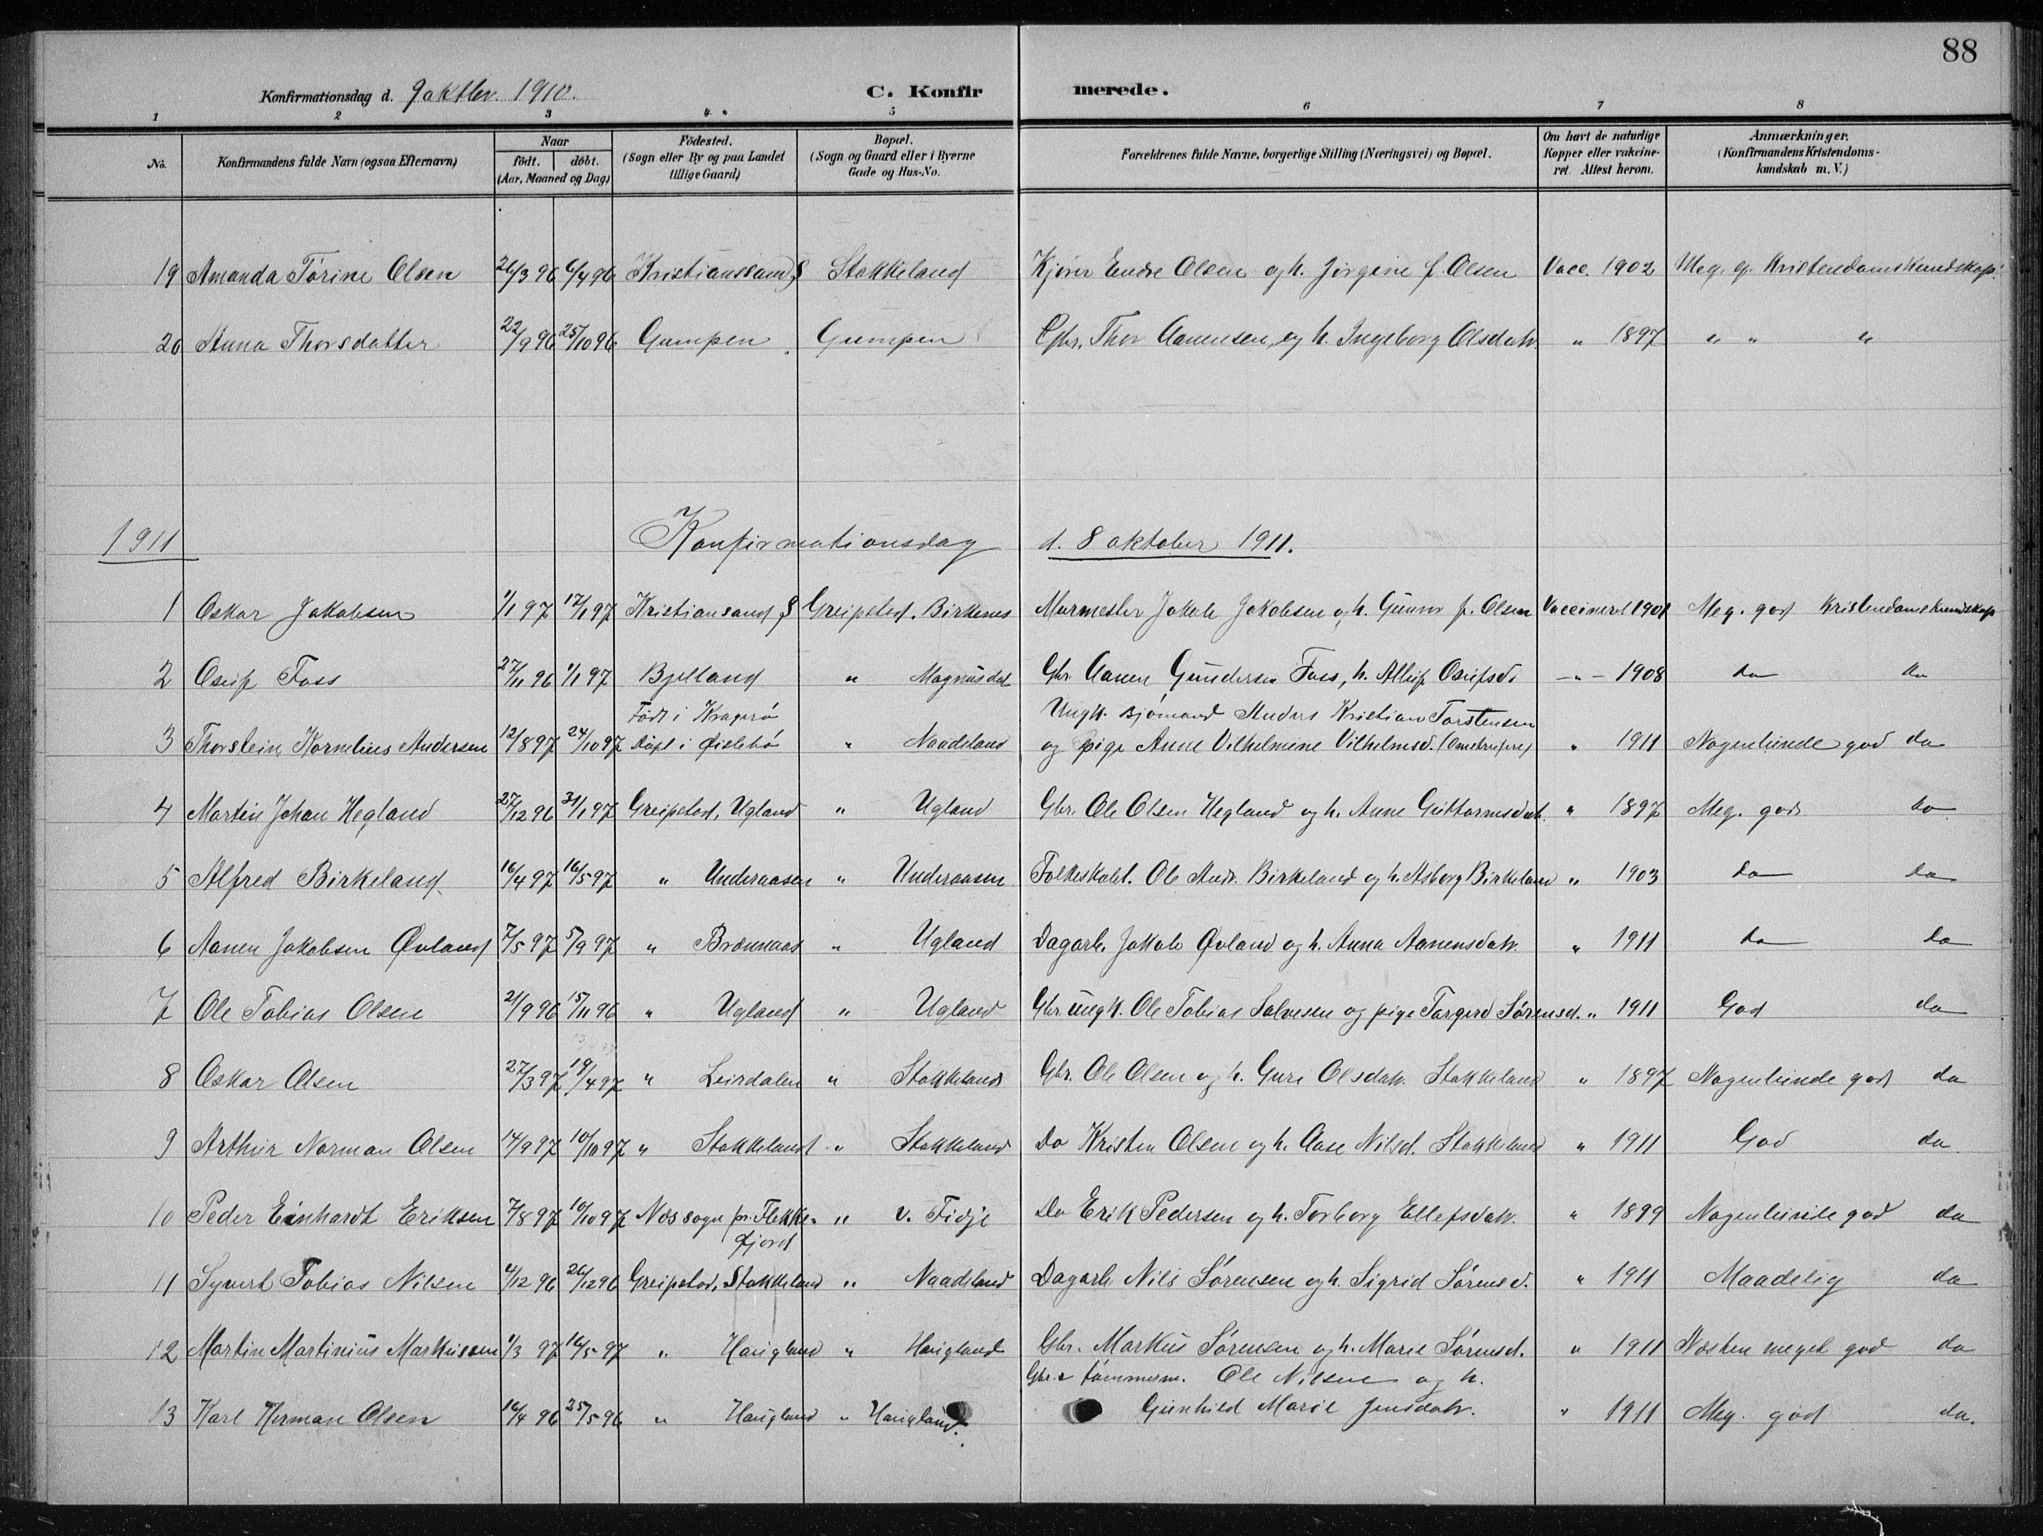 88
Konfirmationsdag d. 9 oktbr. 1910. C. Konfir merede.
1 2 3 4 5 6 7 8
No. Konfirmandens fulde Navn (ogsaa Efternavn) Naar født. døbt. (Aar, Maaned og Dag) Fødested. (Sogn eller By og paa Landet tillige Gaard) Bopæl. (Sogn og Gaard eller i Byerne Gade og Hus-No. Forældrenes fulde Navne, borgerlige Stilling (Næringsvei) og Bopæl. Om havt de naturlige Kopper eller vakcineret. Attest herom. Anmærkninger. (Konfirmandens Kristendomskundskab m. V.)
19 Amanda Törine Olsen 26/3 96 6/4 96 Kristianssand S Stokkeland Kjører Endre Olsen og h. Jørgine f. Olsen Vacc. 1902 Meg. g. Kristendomskundskap.
20 Anna Thorsdatter 22/9 96 25/10 96 Gumpen Gumpen Gbr. Thor Aanensen og h. Ingeborg Olsdatr. " 1897 " " "
1911 Konfirmationsdag d. 8 oktober 1911.
1 Oskar Jakobsen 1/1 97 17/1 97 Kristiansand S Greipstad. Birkenes Murmester Jakob Jakobsen og h. Gunvor f. Olsen Vaccineret 1901 Meg. god Kristendomskundskap
2 Osuf Foss 27/11 96 1/1 97 Bjelland " Magnusdal Gbr. Aanen Gundersen Foss, h. Osufsd. -"- 1908 do do
3 Thorstein Kornelius Andersen 12/8 97 24/10 97 Født i Kragerø Døpt i Øislebø " Naadeland Ungk. Sjömand Anders Kristian Torstensen
og pige Anne Vilhelmine Vilhelmsd. " 1911 Nogenlunde god do
4 Martin Johan Hegland 27/12 96 31/1 97 Greipstad, Ugland " Ugland Gbr. Ole Olsen Hegland og h. Anne Guttormsdatr. " 1897 Meg. god do
5 Alfred Birkeland 16/4 97 16/5 97 " Underaasen " Underaasen Folkeskolel. Ole Andr. Birkeland og h. Asborg Birkeland " 1903 do do
6 Aanen Jakobsen Øvland 7/5 97 5/9 97 " Brænnaas " Ugland Dagarb. Jakob Øvland og h. Anna Aanensdatr. " 1911 do do
7 Ole Tobias Olsen 21/9 96 15/11 96 " Ugland " Ugland Gbr ungk. Ole Tobias Salvesen og pige Torgerd Sørensd. " 1911 God do
8 Oskar Olsen 27/3 97 19/4 97 " Leirdalen " Stokkeland Gbr. Ole Olsen og h. Guri Olsdatr. Stokkeland " 1897 Nogenlunde god do
9 Arthur Norman Olsen 14/9 97 10/10 97 " Stokkeland " Stokkeland Do Kristen Olsen og h. Aase Nilsd. Stokkeland " 1911 God do
10 Peder Einhardt Eriksen 7/8 97 10/10 97 Næs sogn pr. Flekkefjord " v. Fidje Do Erik Pedersen og h. Torborg Ellefsdatr. " 1899 Nogenlunde god do
11 Syvert Tobias Nilsen 4/12 96 26/12 96 Greipstad, Stokkeland " Naadeland Dagarb. Nils Sørensen og h. Sigrid Sørensd. " 1911 Maadelig do
12 Martin Martinius Markussen 1/3 97 16/5 97 " Haugland " Haugland Gbr. Markus Sørensen og h. Marie Sørensd. " 1911 Næsten meget god do
13 Karl Herman Olsen 16/4 96 25/5 96 " Haugland " Haugland. Gbr. & tømmerm. Ole Nilsen og h.
Gunhild Marie Jensdatr. " 1911 Meg. god do.